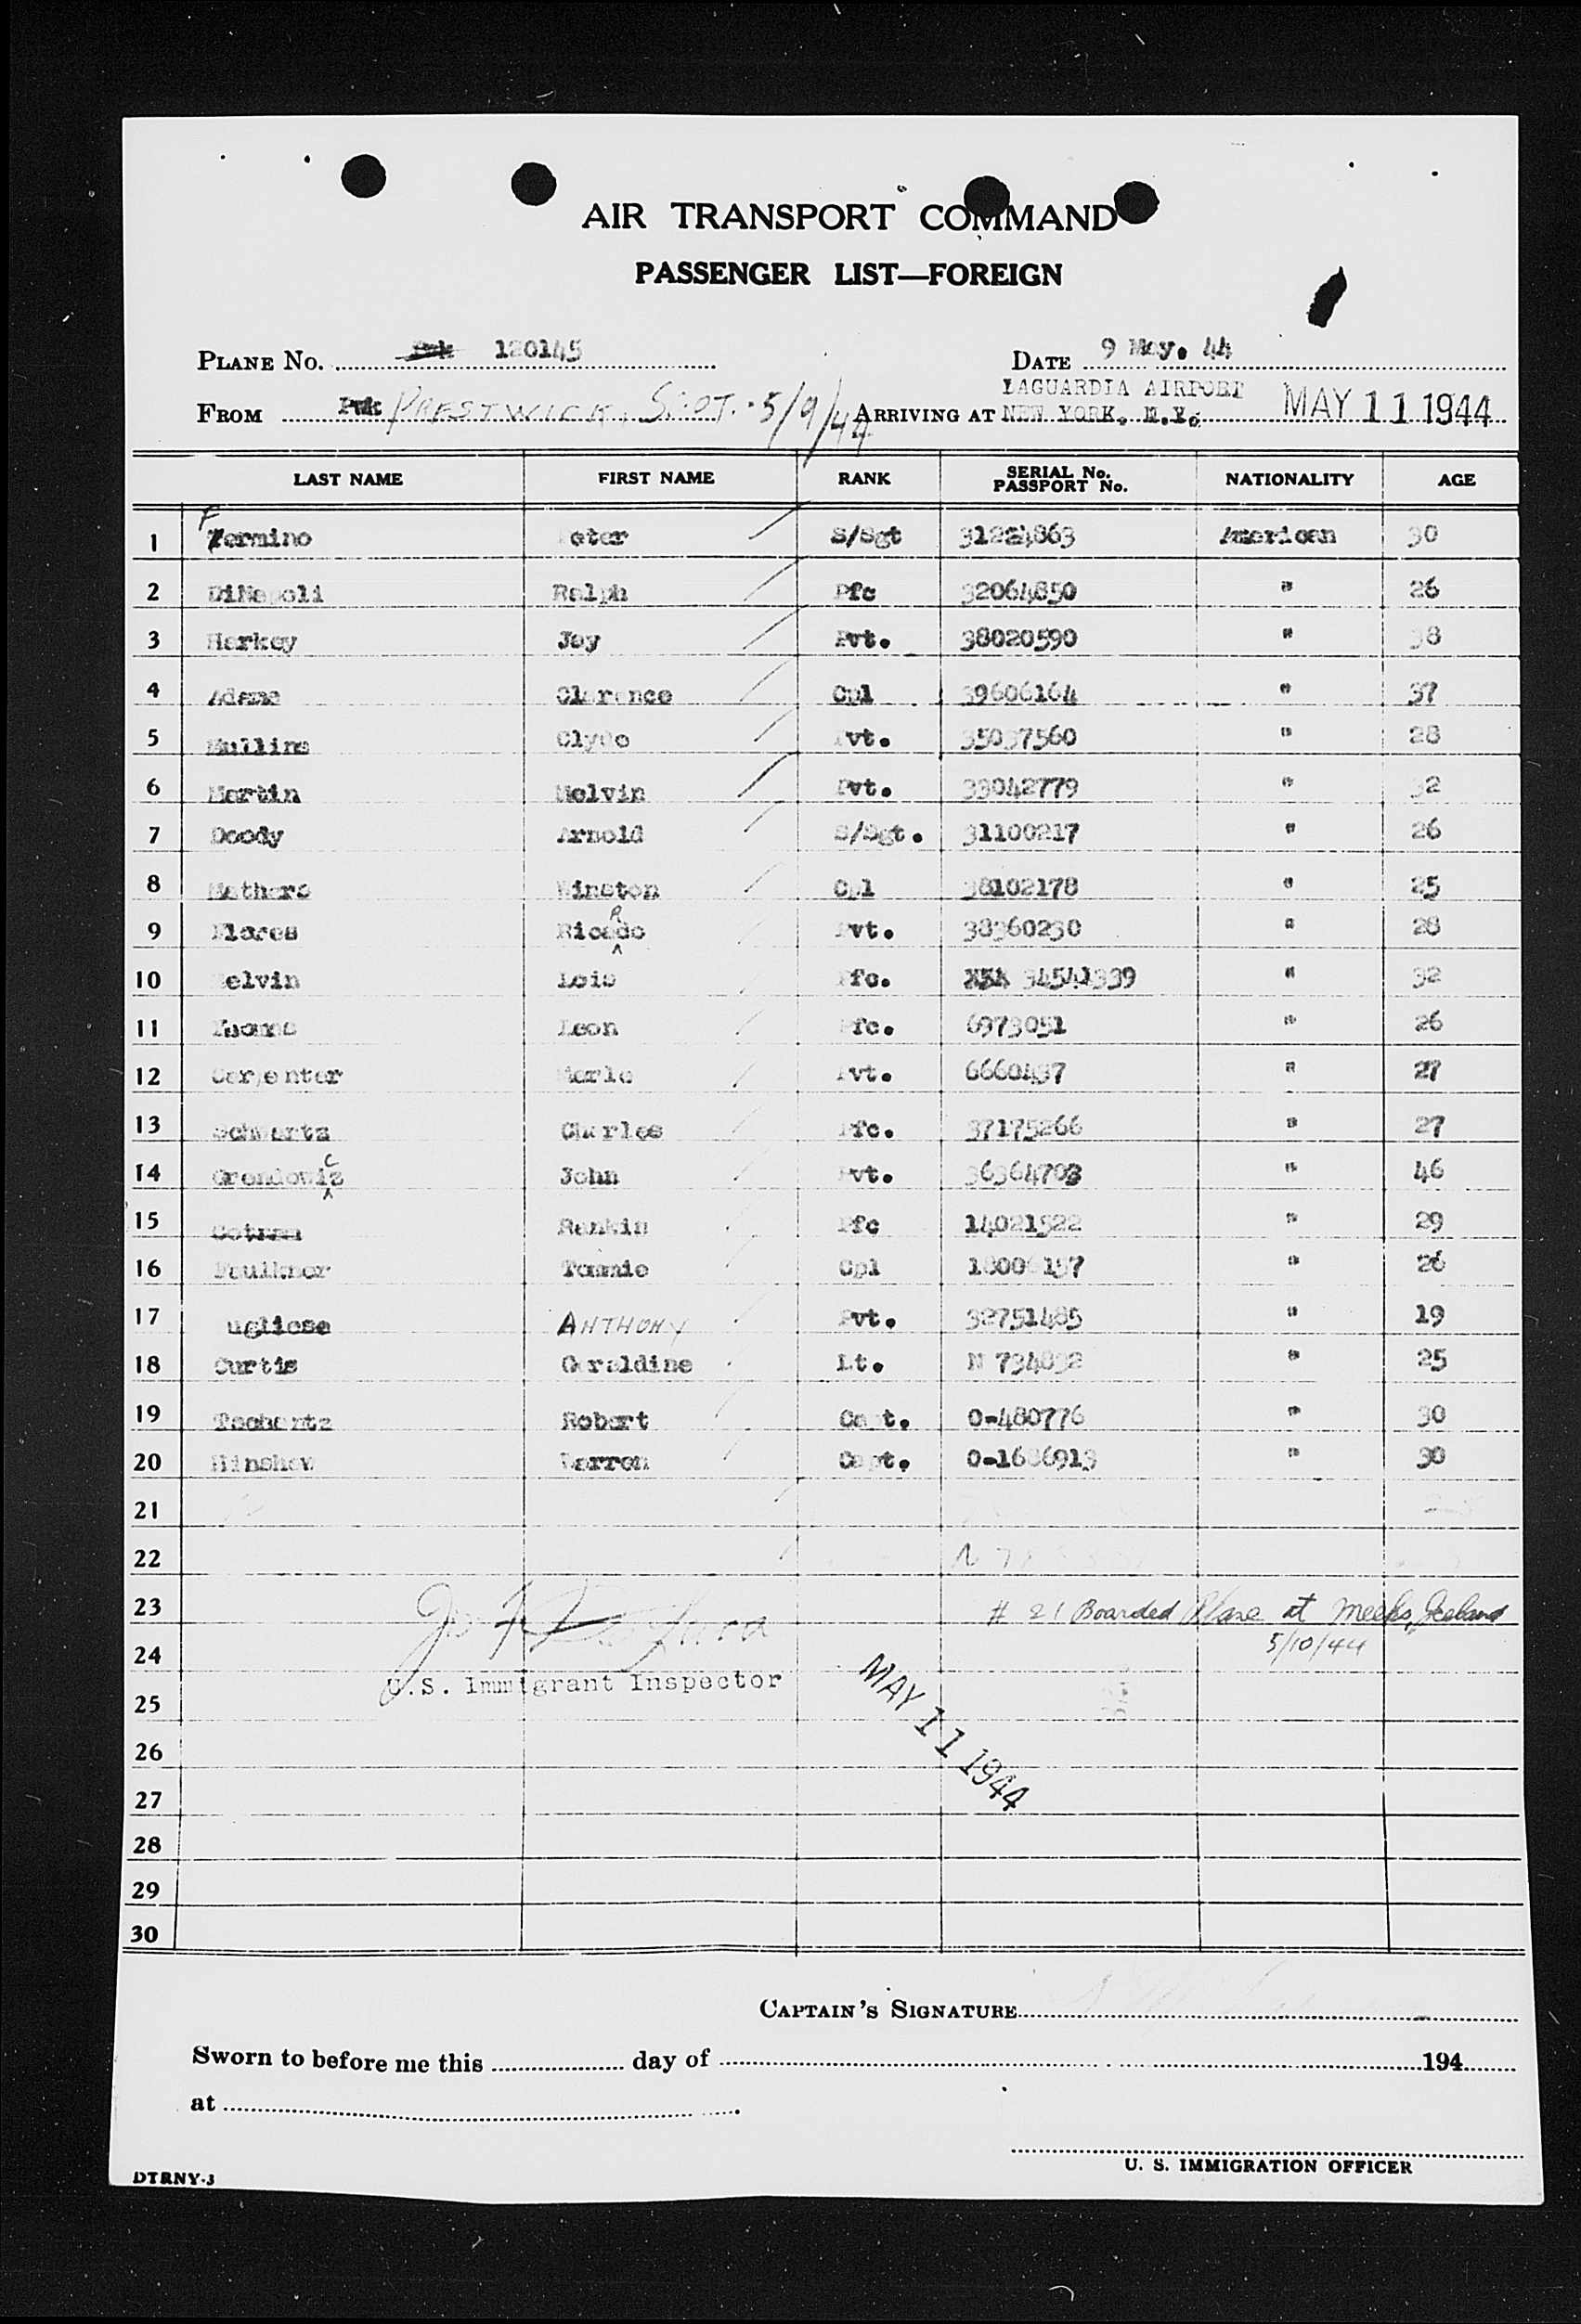 AIR TRANSPORT COMMAND
PASSENGER LIST—FOREIGN
PLANE No. 120145 DATE 9 May. 44
FROM PRESTWICK, SCOT. 5/9/44 ARRIVING AT LAGUARDIA AIRPORT NEW YORK, N.Y. MAY 11 1944
LAST NAME FIRST NAME RANK SERIAL No. PASSPORT No. NATIONALITY AGE
1 Fermino eter S/Sgt 31224863 American 30
2 DiNapoli Ralph Pfc 32064850 " 26
3 Harkey Jay Pvt. 38020590 " 38
4 Adams Clarence Cpl 39606164 " 37
5 Mullins Clyde Pvt. 35037560 " 28
6 Martin Melvin Pvt. 33042779 " 32
7 Doody Arnold S/Sgt. 31100217 " 26
8 Mathers Winston Cpl 38102178 " 25
9 Flores RicaRdo Pvt. 38360230 " 28
10 elvin Lois Pfc. 34541339 " 32
11 Thomas Leon Pfc. 6973051 " 26
12 Carpenter Merle Pvt. 6660437 " 27
13 Schwartz Charles Pfc. 37175266 " 27
14 Grondowicz John Pvt. 36364703 " 46
15 Rankin Pfc 14021522 " 29
16 Faulkner Tommie Cpl " 26
17 ugliese ANTHONY Pvt. 32751485 " 19
18 Curtis Geraldine Lt. N 734832 " 25
19 Tschantz Robert Capt. O-480776 " 30
20 Hinshaw Warren Capt. O-1686913 " 30
21
22
23 # 21 Boarded Plane at Meeks, Iceland
24 5/10/44
U.S. Immigrant Inspector MAY 11 1944
25
26
27
28
29
30
CAPTAIN'S SIGNATURE
Sworn to before me this day of 194
at
U. S. IMMIGRATION OFFICER
DTRNY-3